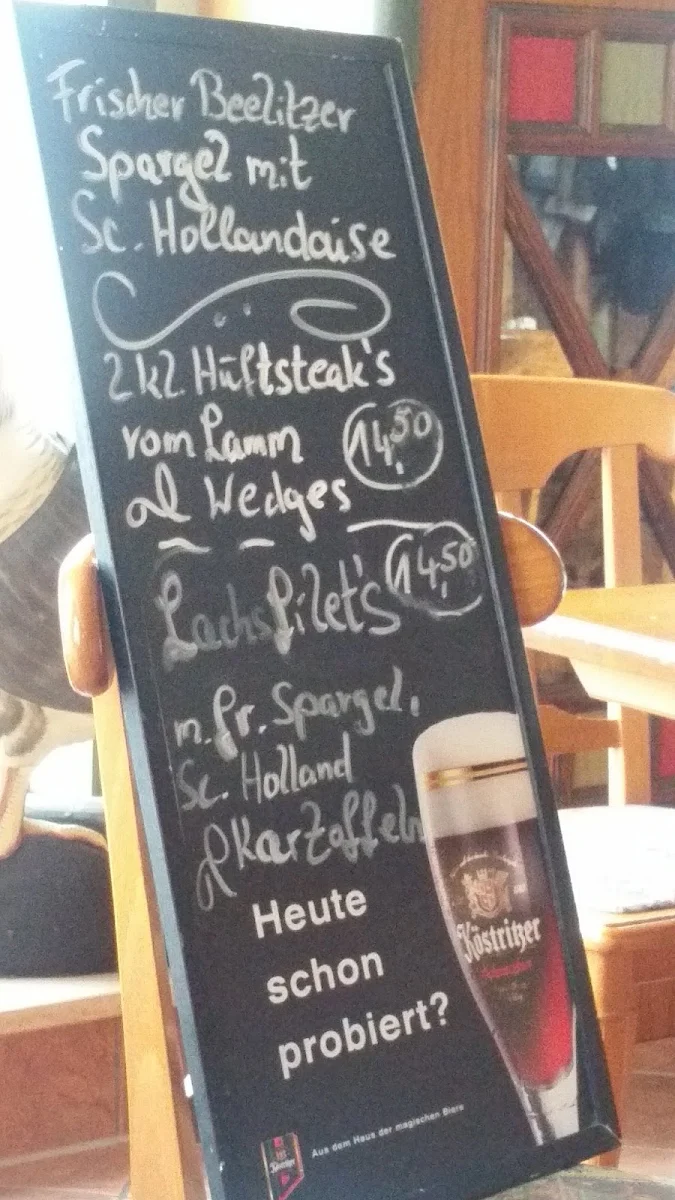 Frischer Beelitzer
Spargel mit
Sc. Hollandaise
2 kl Hüftsteak's
vom Lamm 14,50
& Wedges
Lachsfilet's 14,50
m. fr. Spargel,
Sc. Holland
& Kartoffeln
Heute
schon
probiert?
Köstritzer
Aus dem Haus der magischen Biere